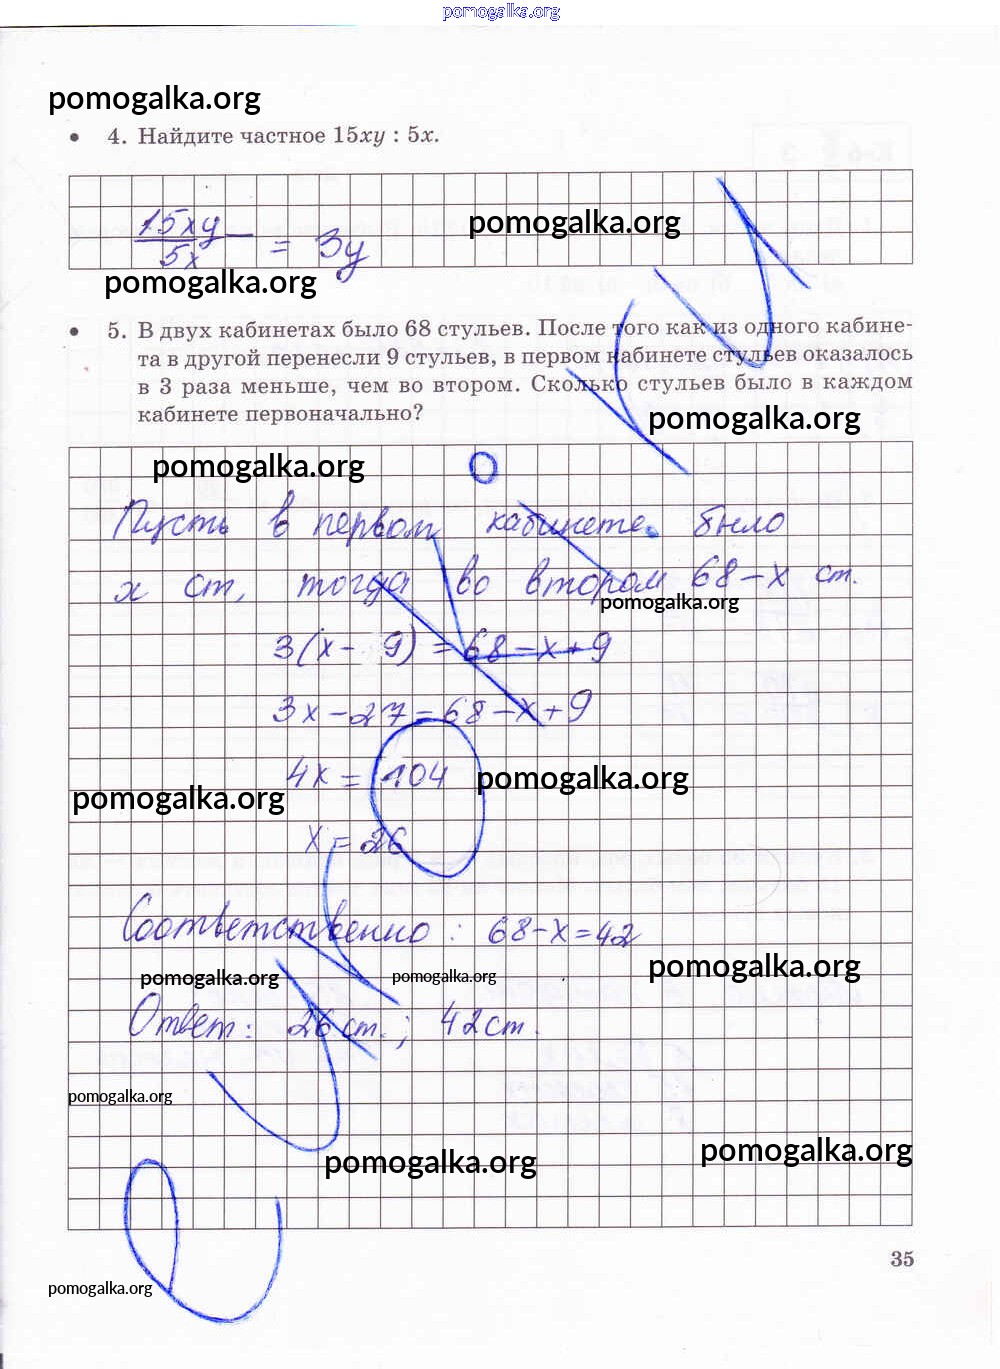 pomogalka.org
pomogalka.org
• 4. Найдите частное 15xy : 5x.
15xy
5x
= 3y
pomogalka.org
pomogalka.org
• 5. В двух кабинетах было 68 стульев. После того как из одного кабине-
та в другой перенесли 9 стульев, в первом кабинете стульев оказалось
в 3 раза меньше, чем во втором. Сколько стульев было в каждом
кабинете первоначально?
pomogalka.org
pomogalka.org
Пусть в первом кабинете было
x ст, тогда во втором 68-x ст.
pomogalka.org
3(x- 9) = 68-x+9
3x-27=68-x+9
4x = 104
pomogalka.org
pomogalka.org
x = 26
Соответственно: 68-x=42
pomogalka.org
pomogalka.org
pomogalka.org
Ответ: 26 ст.; 42 ст.
pomogalka.org
pomogalka.org
pomogalka.org
35
pomogalka.org